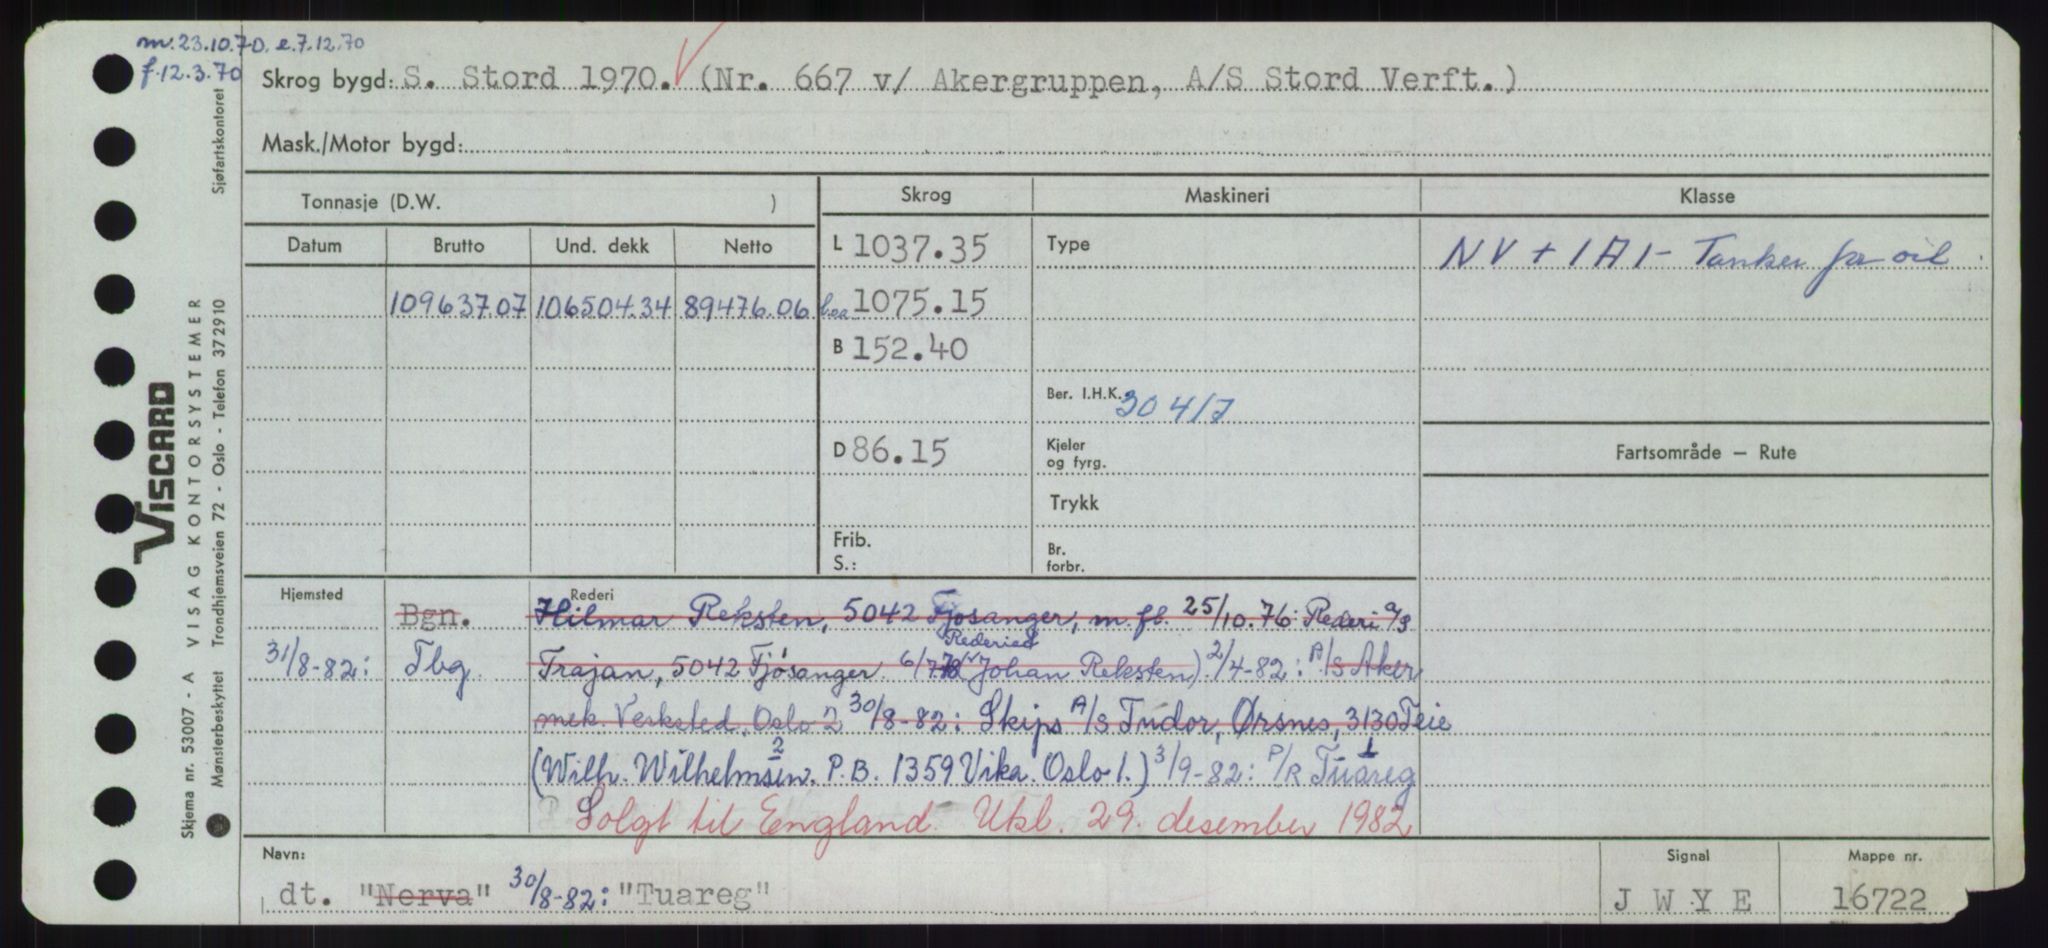 m. 23.10.70. e. 7.12.70
f. 12.3.70
Skrog bygd: S. Stord 1970. (Nr. 667 v/ Akergruppen, A/S Stord Verft.)
Mask./Motor bygd:
Tonnasje (D.W. )
Skrog
Maskineri
Klasse
Datum Brutto Und. dekk Netto
L 1037.35
Type
NV + 1A1 - Tanker for oil
109637.07 106504.34 89476.06
loa 1075.15
B 152.40
Ber. I.H.K. 30417
D 86.15
Kjeler
og fyrg.
Fartsområde — Rute
Trykk
Frib.
S.:
Br.
forbr.
Hjemsted
Rederi
Bgn. Hilmar Reksten, 5042 Fjøsanger, m. fl. 25/10.76: Rederi a/s
31/8-82: Tbg. Trajan, 5042 Fjøsanger 6/7.78 (v/ Johan Reksten). 2/4-82: A/S Aker
mek. Verksted, Oslo 2 30/8-82: Skips A/S Tudor, Ørsnes, 3130 Teie
(Wilh. Wilhelmsen, P.B. 1359 Vika. Oslo 1.) 3/9-82: P/R Tuareg
Solgt til England. Utkl. 29. desember 1982
Navn:
dt. "Nerva" 30/8-82: "Tuareg"
Signal
J W Y E
Mappe nr.
16722
VISCARD
VISAG KONTORSYSTEMER
Skjema nr. 53007 - A
Mønsterbeskyttet Trondhjemsveien 72 - Oslo - Telefon 372910 Sjøfartskontoret